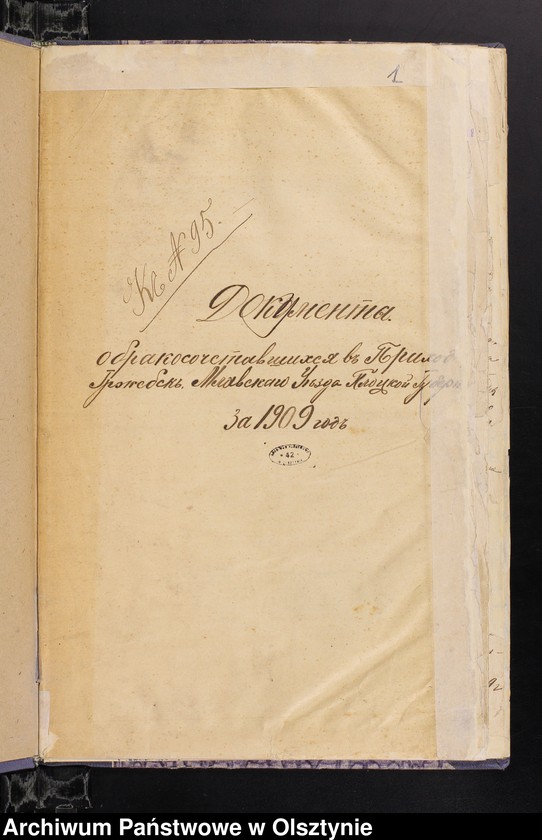 1
Кс № 95.
Документа.
о бракосочетавшихся въ Приход
Грожебскъ, Млавскаго Уѣзда Плоцкой Губерн
за 1909 годъ
42
Archiwum Państwowe w Olsztynie